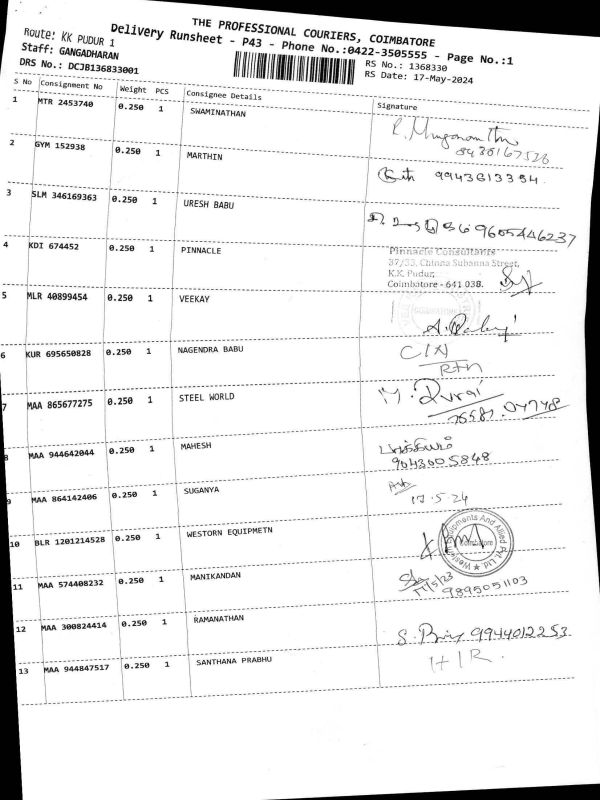 THE PROFESSIONAL COURIERS, COIMBATORE
Delivery Runsheet - P43 - Phone No.:0422-3505555 - Page No.:1
Route: KK PUDUR 1
Staff: GANGADHARAN
DRS No.: DCJB136833001
RS No.: 1368330
RS Date: 17-May-2024
S No Consignment No Weight PCS Consignee Details Signature
1 MTR 2453740 0.250 1 SWAMINATHAN
8438167526
2 GYM 152938 0.250 1 MARTHIN
9943613394
3 SLM 346169363 0.250 1 URESH BABU
9605446237
4 KDI 674452 0.250 1 PINNACLE
Pinnacle Consultants
37/33, Chinna Subanna Street,
K.K. Pudur,
Coimbatore - 641 038.
5 MLR 40899454 0.250 1 VEEKAY
6 KUR 695650828 0.250 1 NAGENDRA BABU
Rtn
7 MAA 865677275 0.250 1 STEEL WORLD
M. Durai
75581 04748
8 MAA 944642044 0.250 1 MAHESH
9043005848
9 MAA 864142406 0.250 1 SUGANYA
17.5.24
10 BLR 1201214528 0.250 1 WESTORN EQUIPMETN
Equipments And Allied Pvt. Ltd
Coimbatore
11 MAA 574408232 0.250 1 MANIKANDAN
17/5/23
9895051103
12 MAA 300824414 0.250 1 RAMANATHAN
9944012253
13 MAA 944847517 0.250 1 SANTHANA PRABHU